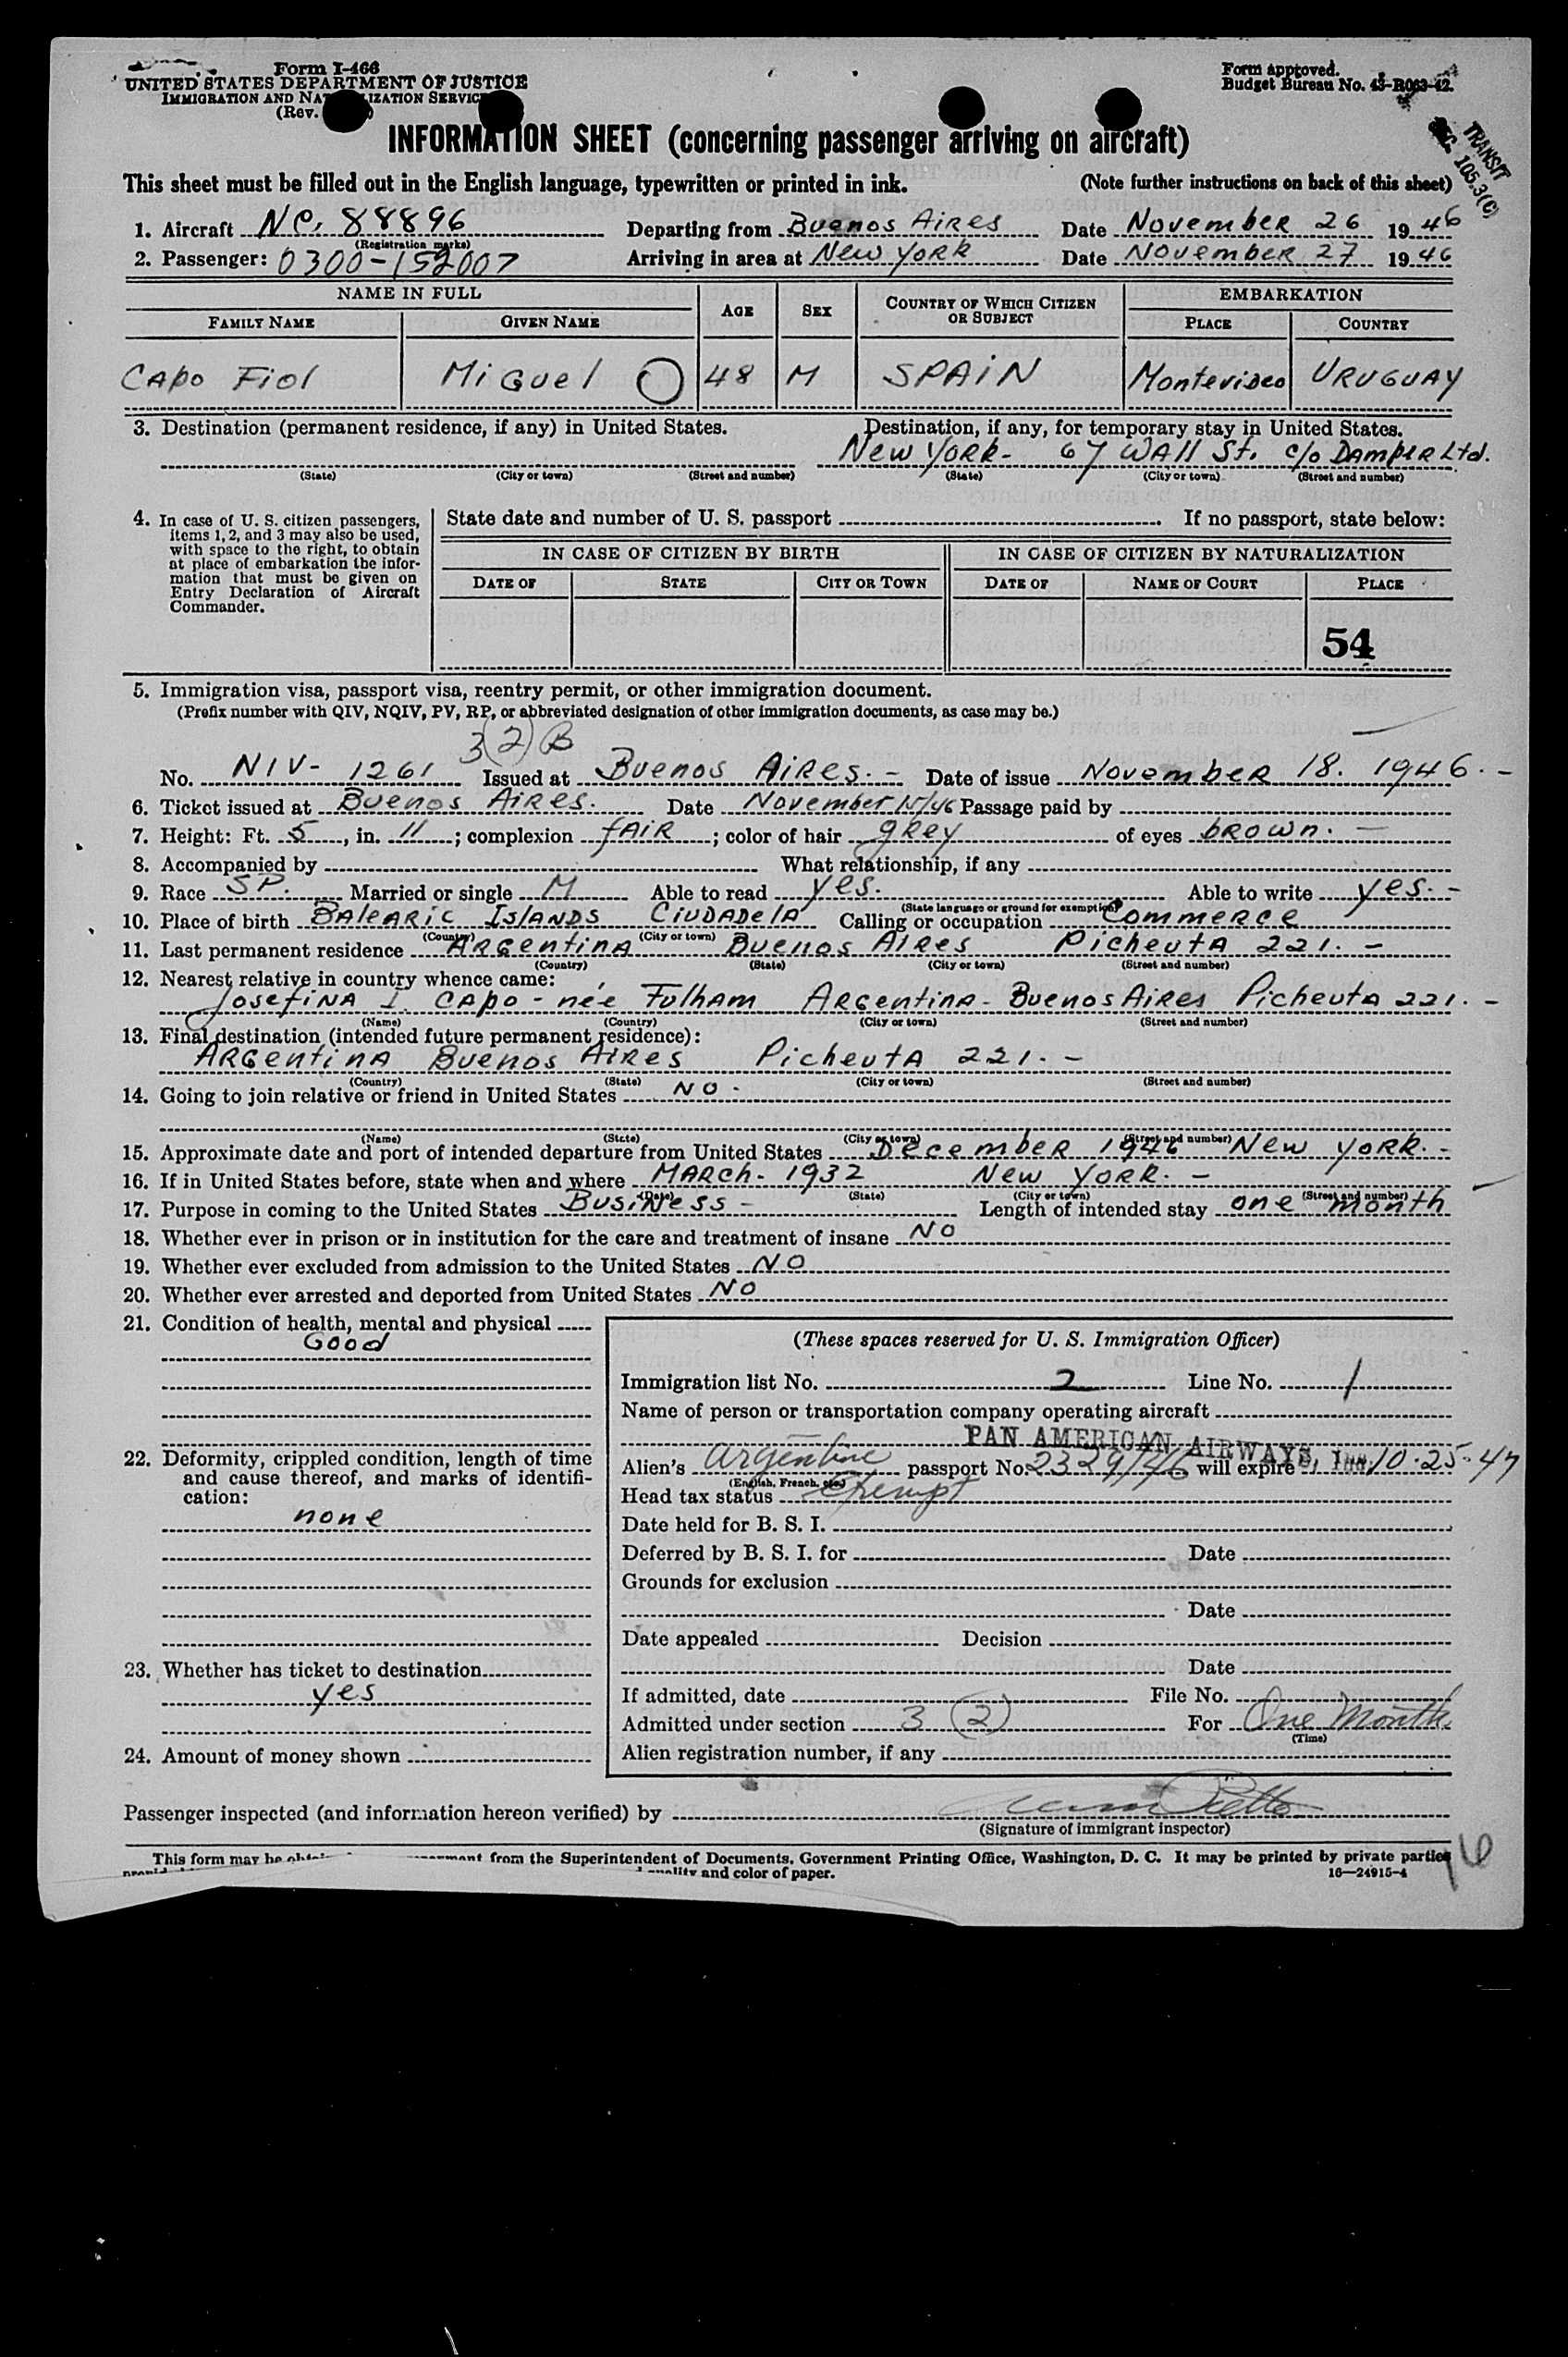 Form I-466
UNITED STATES DEPARTMENT OF JUSTICE
IMMIGRATION AND NATURALIZATION SERVICE
(Rev.
Form approved.
Budget Bureau No. 43-R063-42.
TRANSIT
SEC. 105.3(C)
INFORMATION SHEET (concerning passenger arriving on aircraft)
This sheet must be filled out in the English language, typewritten or printed in ink. (Note further instructions on back of this sheet)
1. Aircraft NC. 88896 Departing from Buenos Aires Date November 26 1946
(Registration marks)
2. Passenger: 0300-152007 Arriving in area at New York Date November 27 1946
NAME IN FULL AGE SEX COUNTRY OF WHICH CITIZEN OR SUBJECT EMBARKATION
FAMILY NAME GIVEN NAME PLACE COUNTRY
Capo Fiol Miguel 48 M SPAIN Montevideo URUGUAY
3. Destination (permanent residence, if any) in United States. Destination, if any, for temporary stay in United States.
New York- 67 Wall St. c/o Damper Ltd.
(State) (City or town) (Street and number) (State) (City or town) (Street and number)
4. In case of U. S. citizen passengers, items 1, 2, and 3 may also be used, with space to the right, to obtain at place of embarkation the information that must be given on Entry Declaration of Aircraft Commander.
State date and number of U. S. passport . If no passport, state below:
IN CASE OF CITIZEN BY BIRTH IN CASE OF CITIZEN BY NATURALIZATION
DATE OF STATE CITY OR TOWN DATE OF NAME OF COURT PLACE
54
5. Immigration visa, passport visa, reentry permit, or other immigration document.
(Prefix number with QIV, NQIV, PV, RP, or abbreviated designation of other immigration documents, as case may be.)
3(2)B
No. NIV- 1261 Issued at Buenos Aires. - Date of issue November 18. 1946. -
6. Ticket issued at Buenos Aires. Date November 15/46 Passage paid by
7. Height: Ft. 5, in. 11; complexion fair; color of hair grey of eyes brown. -
8. Accompanied by What relationship, if any
9. Race SP. Married or single M Able to read yes. Able to write yes. -
(State language or ground for exemption)
10. Place of birth Balearic Islands Ciudadela Calling or occupation Commerce
(Country) (City or town)
11. Last permanent residence Argentina Buenos Aires Picheuta 221. -
(Country) (State) (City or town) (Street and number)
12. Nearest relative in country whence came:
Josefina I. Capo - née Fulham Argentina - Buenos Aires Picheuta 221. -
(Name) (Country) (City or town) (Street and number)
13. Final destination (intended future permanent residence):
Argentina Buenos Aires Picheuta 221. -
(Country) (State) (City or town) (Street and number)
14. Going to join relative or friend in United States NO -
(Name) (State) (City or town) (Street and number)
15. Approximate date and port of intended departure from United States December 1946 New York. -
16. If in United States before, state when and where March - 1932 New York. -
(Date) (State) (City or town) (Street and number)
17. Purpose in coming to the United States Business - Length of intended stay one month
18. Whether ever in prison or in institution for the care and treatment of insane NO
19. Whether ever excluded from admission to the United States NO
20. Whether ever arrested and deported from United States NO
21. Condition of health, mental and physical
Good
22. Deformity, crippled condition, length of time and cause thereof, and marks of identification:
none
23. Whether has ticket to destination
yes
24. Amount of money shown
(These spaces reserved for U. S. Immigration Officer)
Immigration list No. 2 Line No. 1
Name of person or transportation company operating aircraft
PAN AMERICAN AIRWAYS, Inc.
Alien's Argentine passport No. will expire 10-25-47
(English, French, etc.)
Head tax status Exempt
Date held for B. S. I.
Deferred by B. S. I. for Date
Grounds for exclusion
Date
Date appealed Decision
Date
If admitted, date File No.
Admitted under section 3 (2) For One Month
(Time)
Alien registration number, if any
Passenger inspected (and information hereon verified) by
(Signature of immigrant inspector)
This form may be from the Superintendent of Documents, Government Printing Office, Washington, D. C. It may be printed by private parties
quality and color of paper.
16—24915-4